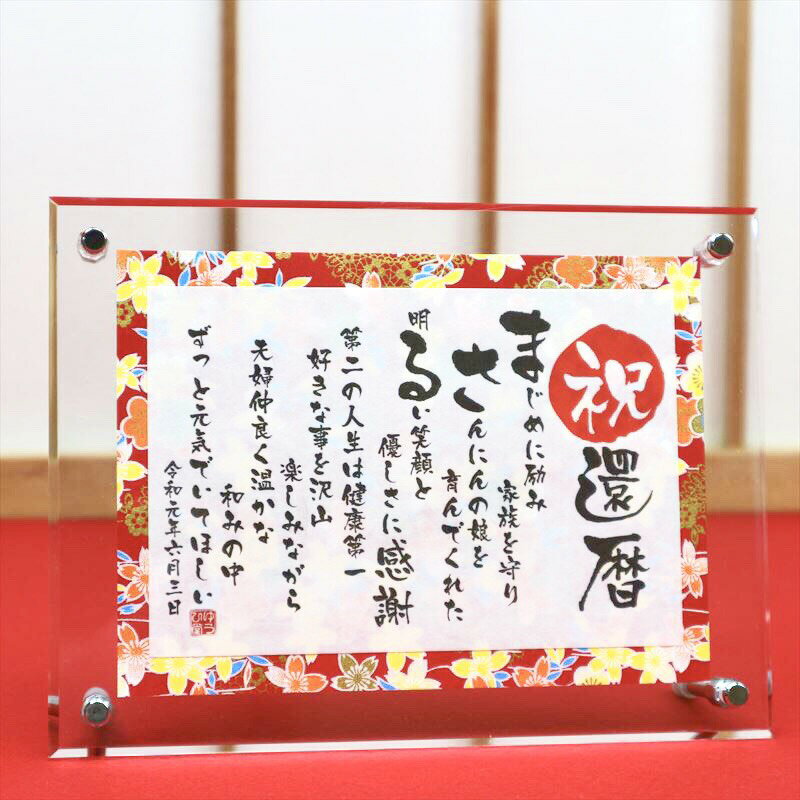 祝還暦
まじめに励み
家族を守り
さんにんの娘を
育んでくれた
明るい笑顔と
優しさに感謝
第二の人生は健康第一
好きな事を沢山
楽しみながら
夫婦仲良く温かな
和みの中
ずっと元気でいてほしい
令和元年六月三日